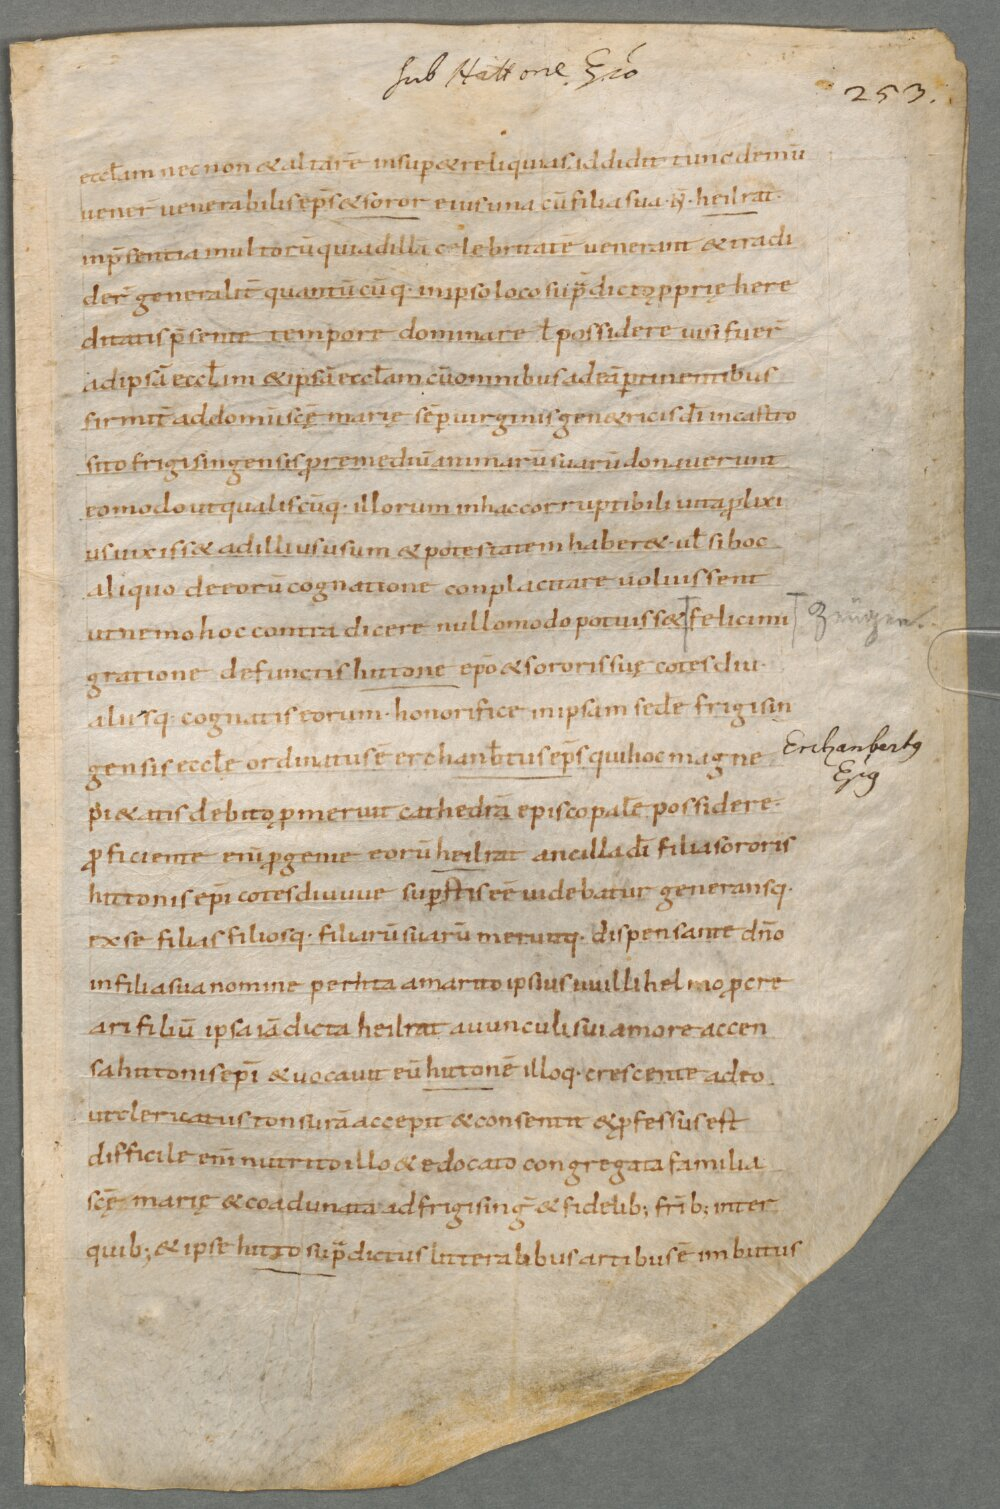 sub Hittone Ep̄o
253.
eccl̄am necnon & altarē insup & reliquias. id didit tunc demū
vener̄ venerabilis ep̄s & soror eius una cū filia sua · n̄ · heilrat ·
inp̄sentia multorū qui ad illā celebritatē venerant & tradi
der̄ generalit̄ quantū cūq · inipso loco sup̄dictę pprię here
ditatis p̄sente tempore dominare ł possidere visi fuer̄
ad ipsā eccl̄am & ipsā eccl̄am cū omnibus ad eā ptinentibus
firmit̄ ad domū scę̄ marię sēp virginis gen&ricis dī in castro
sito frigisingensis p remediū animarū suarū donaverunt
eo modo ut qualiscūq · illorum in hac corruptibili vita plixi
us vixiss& ad illius usum & potestatem haber& · uł si hoc
aliquo de eorū cognatione conplacitare voluissent
ut nemo hoc contradicere nullomodo potuiss& felici mi
Zeugen.
gratione defunctis hittone ep̄o & sororis suę cotesdiu ·
aliisq · cognatis eorum · honorifice in ipsam sedē frigisin
gensis eccl̄ę ordinatus ē erchanb̄tus ep̄s qui hoc magne
Erchanbertg
Ep̄g
pi&atis debitę pmeruit cathedrā episcopalē possidere ·
p ficiente enī pgenie eorū heilrat ancilla dī filia sororis
hittonis ep̄i cotesdiuuue sup̄stis eē videbatur generansq ·
ex se filias filiosq · filiarū suarū meruitq · dispensante dn̄o
in filia sua nomine perhta a marito ipsius uuillihelmo pcre
ari filiū ipsa iā dicta heilrat avunculi sui amore accen
sa hittonis ep̄i & vocavit eū hittonē illoq · crescente adeo
ut clericatus tonsurā accepit & consentit & pfessus est
difficile enī nutrito illo & edocato congregata familia
scę̄ marię & coadunata ad frigisinḡ & fidelib; fr̄ib; inter
quib; & ipse hitto sup̄dictus litteralibus artibus ē imbutus